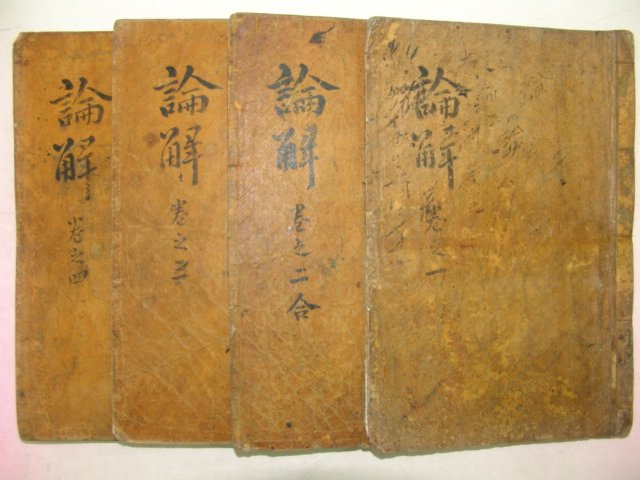 論觧
卷之一
論觧
卷之二合
論觧
卷之三
論觧
卷之四